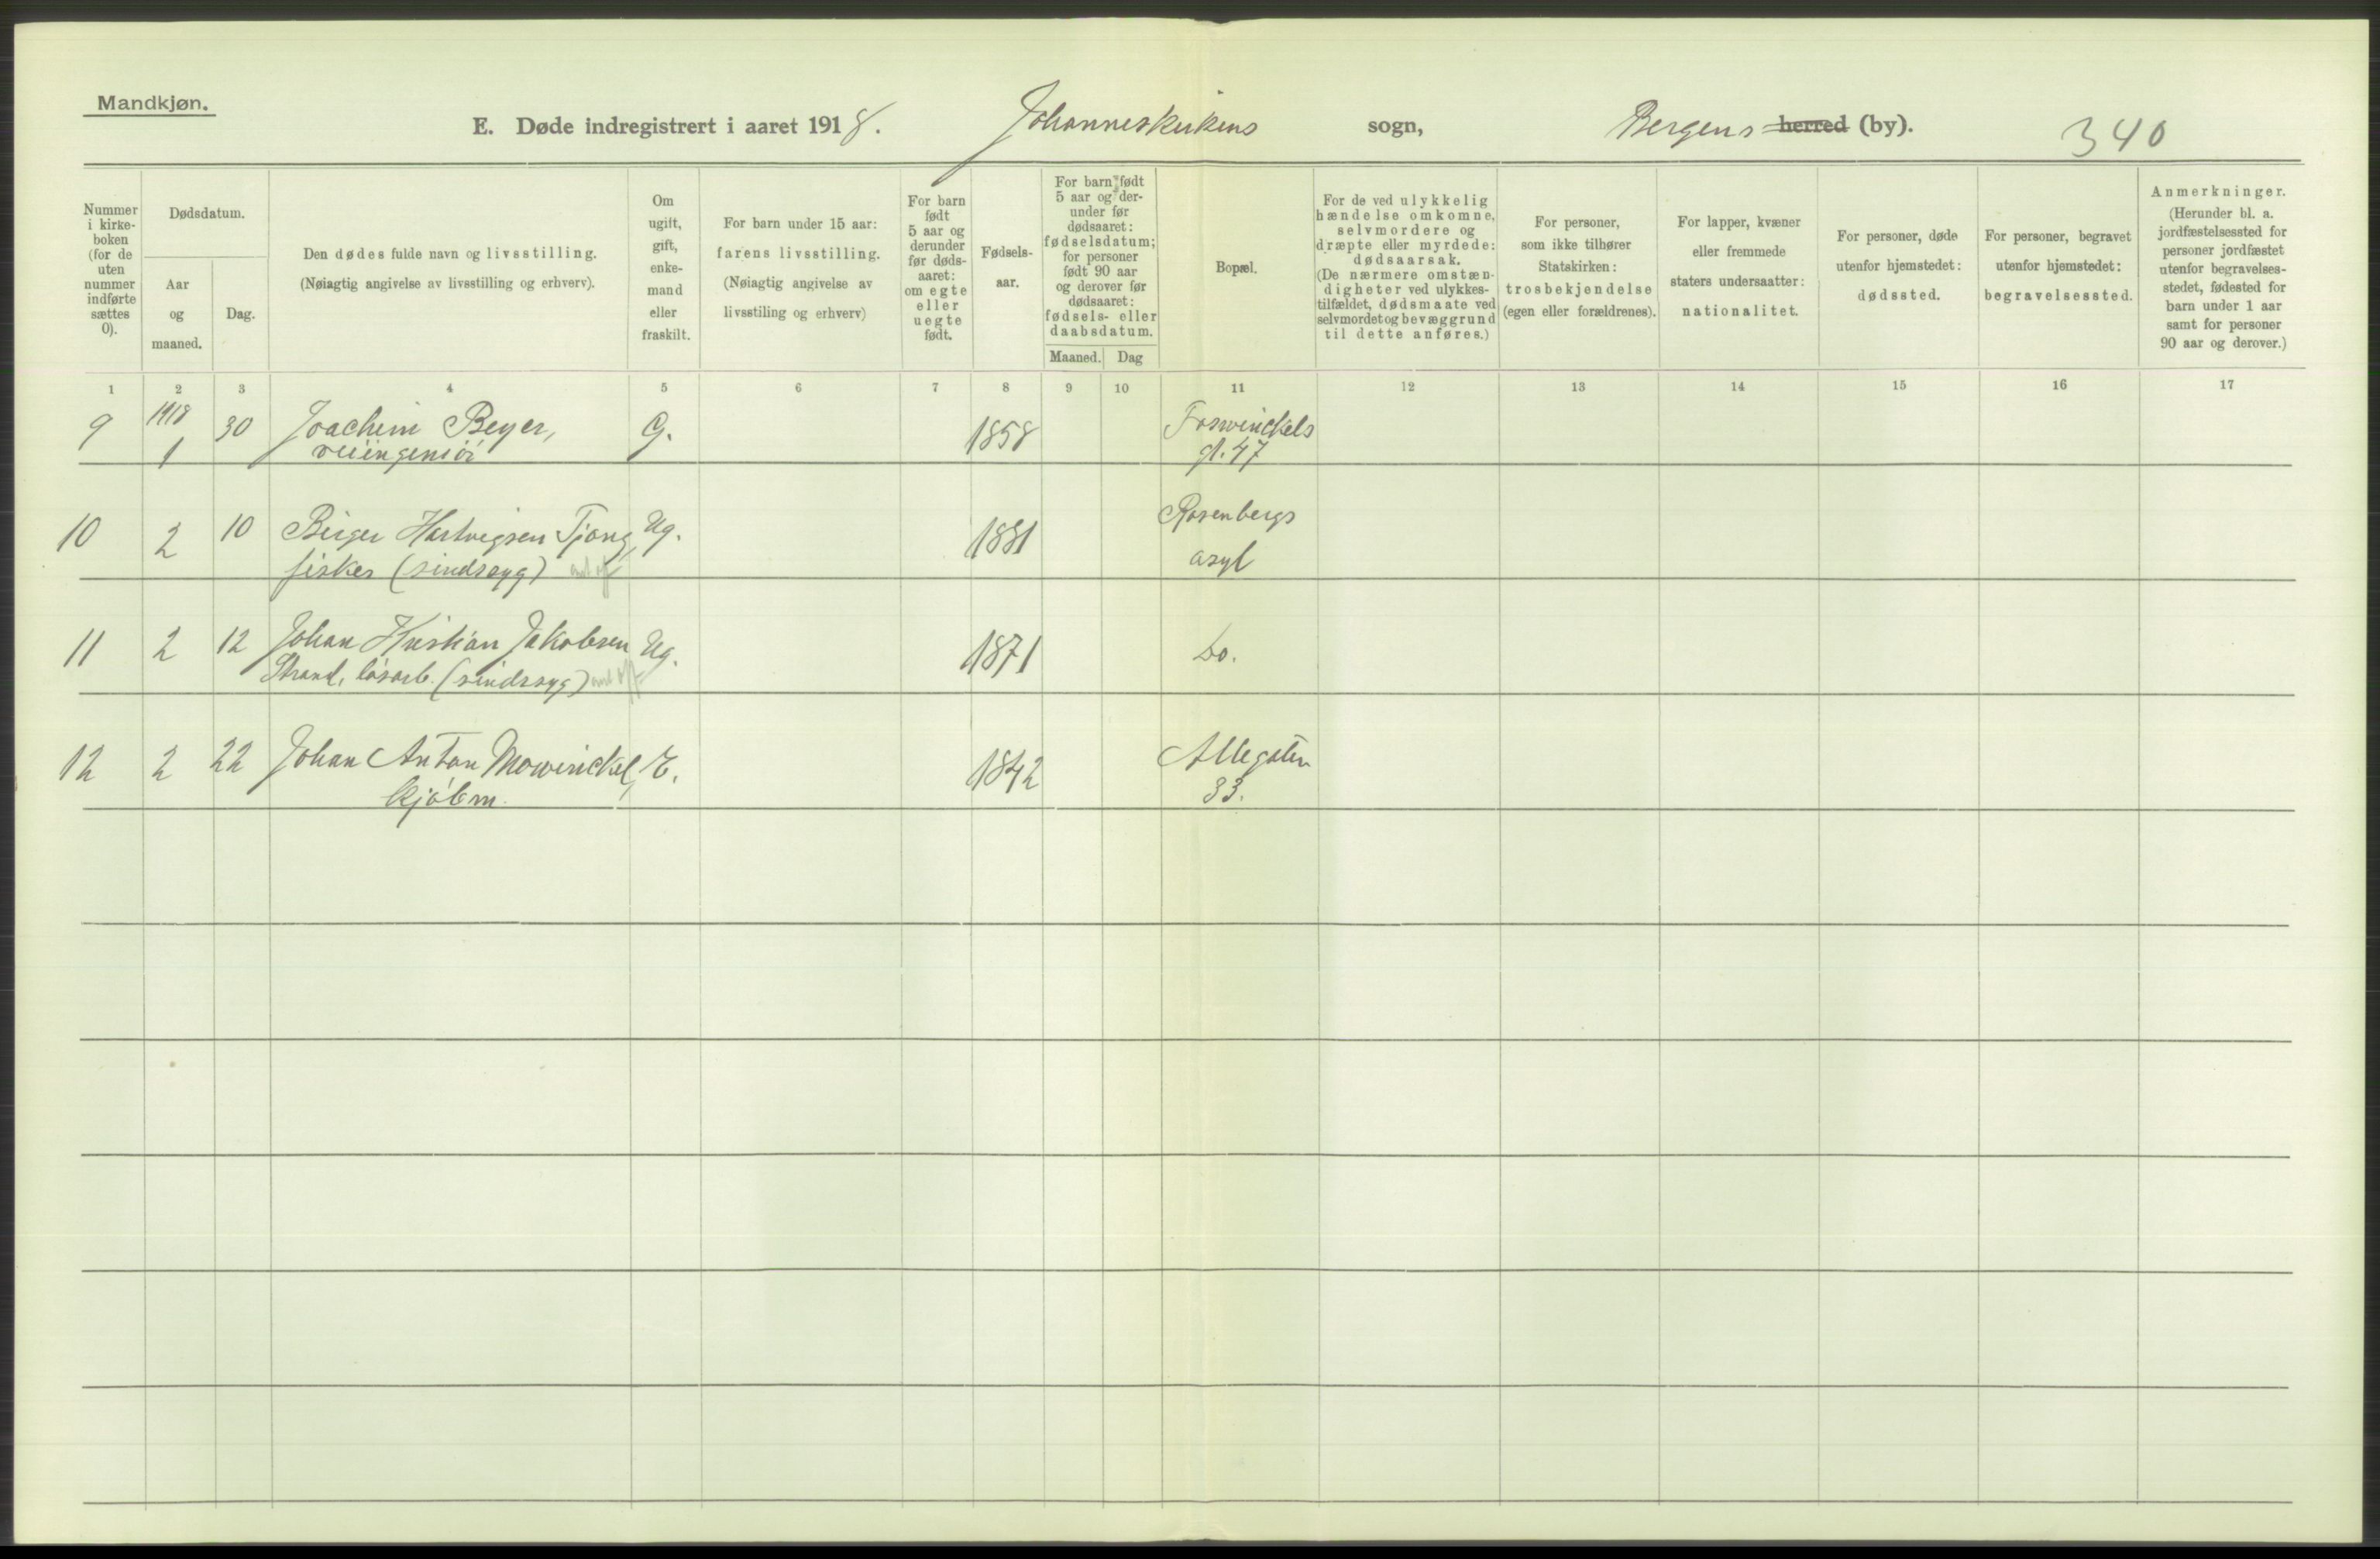 Mandkjøn.
E. Døde indregistrert i aaret 1918. Johanneskirkens sogn, Bergens herred (by). 340
Nummer i kirke-boken (for de uten nummer indførte sættes 0).
Dødsdatum.
Aar og maaned.
Dag.
Den dødes fulde navn og livsstilling.
(Nøiagtig angivelse av livsstilling og erhverv).
Om ugift, gift, enke-mand eller fraskilt.
For barn under 15 aar: farens livsstilling.
(Nøiagtig angivelse av livsstiling og erhverv)
For barn født 5 aar og derunder før døds-aaret: om egte eller uegte født.
Fødsels-aar.
For barn født 5 aar og der-under før dødsaaret: fødselsdatum; for personer født 90 aar og derover før dødsaaret: fødsels- eller daabsdatum.
Maaned. Dag
Bopæl.
For de ved ulykkelig hændelse omkomne, selvmordere og dræpte eller myrdede: dødsaarsak.
(De nærmere omstæn-digheter ved ulykkes-tilfældet, dødsmaate ved selvmordet og bevæggrund til dette anføres.)
For personer, som ikke tilhører Statskirken: trosbekjendelse (egen eller forældrenes).
For lapper, kvæner eller fremmede staters undersaatter: nationalitet.
For personer, døde utenfor hjemstedet: dødssted.
For personer, begravet utenfor hjemstedet: begravelsessted.
Anmerkninger.
(Herunder bl. a. jordfæstelsessted for personer jordfæstet utenfor begravelses-stedet, fødested for barn under 1 aar samt for personer 90 aar og derover.)
1 2 3 4 5 6 7 8 9 10 11 12 13 14 15 16 17
9 1918 1 30 Joachim Beyer, G. 1858 Foswinckels
veiingeniör gt. 47
10 2 10 Birger Hartvigsen Tjong, Ug. 1881 Rosenbergs
fisker (sindssyg) asyl
11 2 12 Johan Kristian Jakobsen Ug. 1871 Do.
Strand, løsarb. (sindssyg)
12 2 22 Johan Anton Mowinckel, E. 1842 Allegaten
kjøbm. 33.